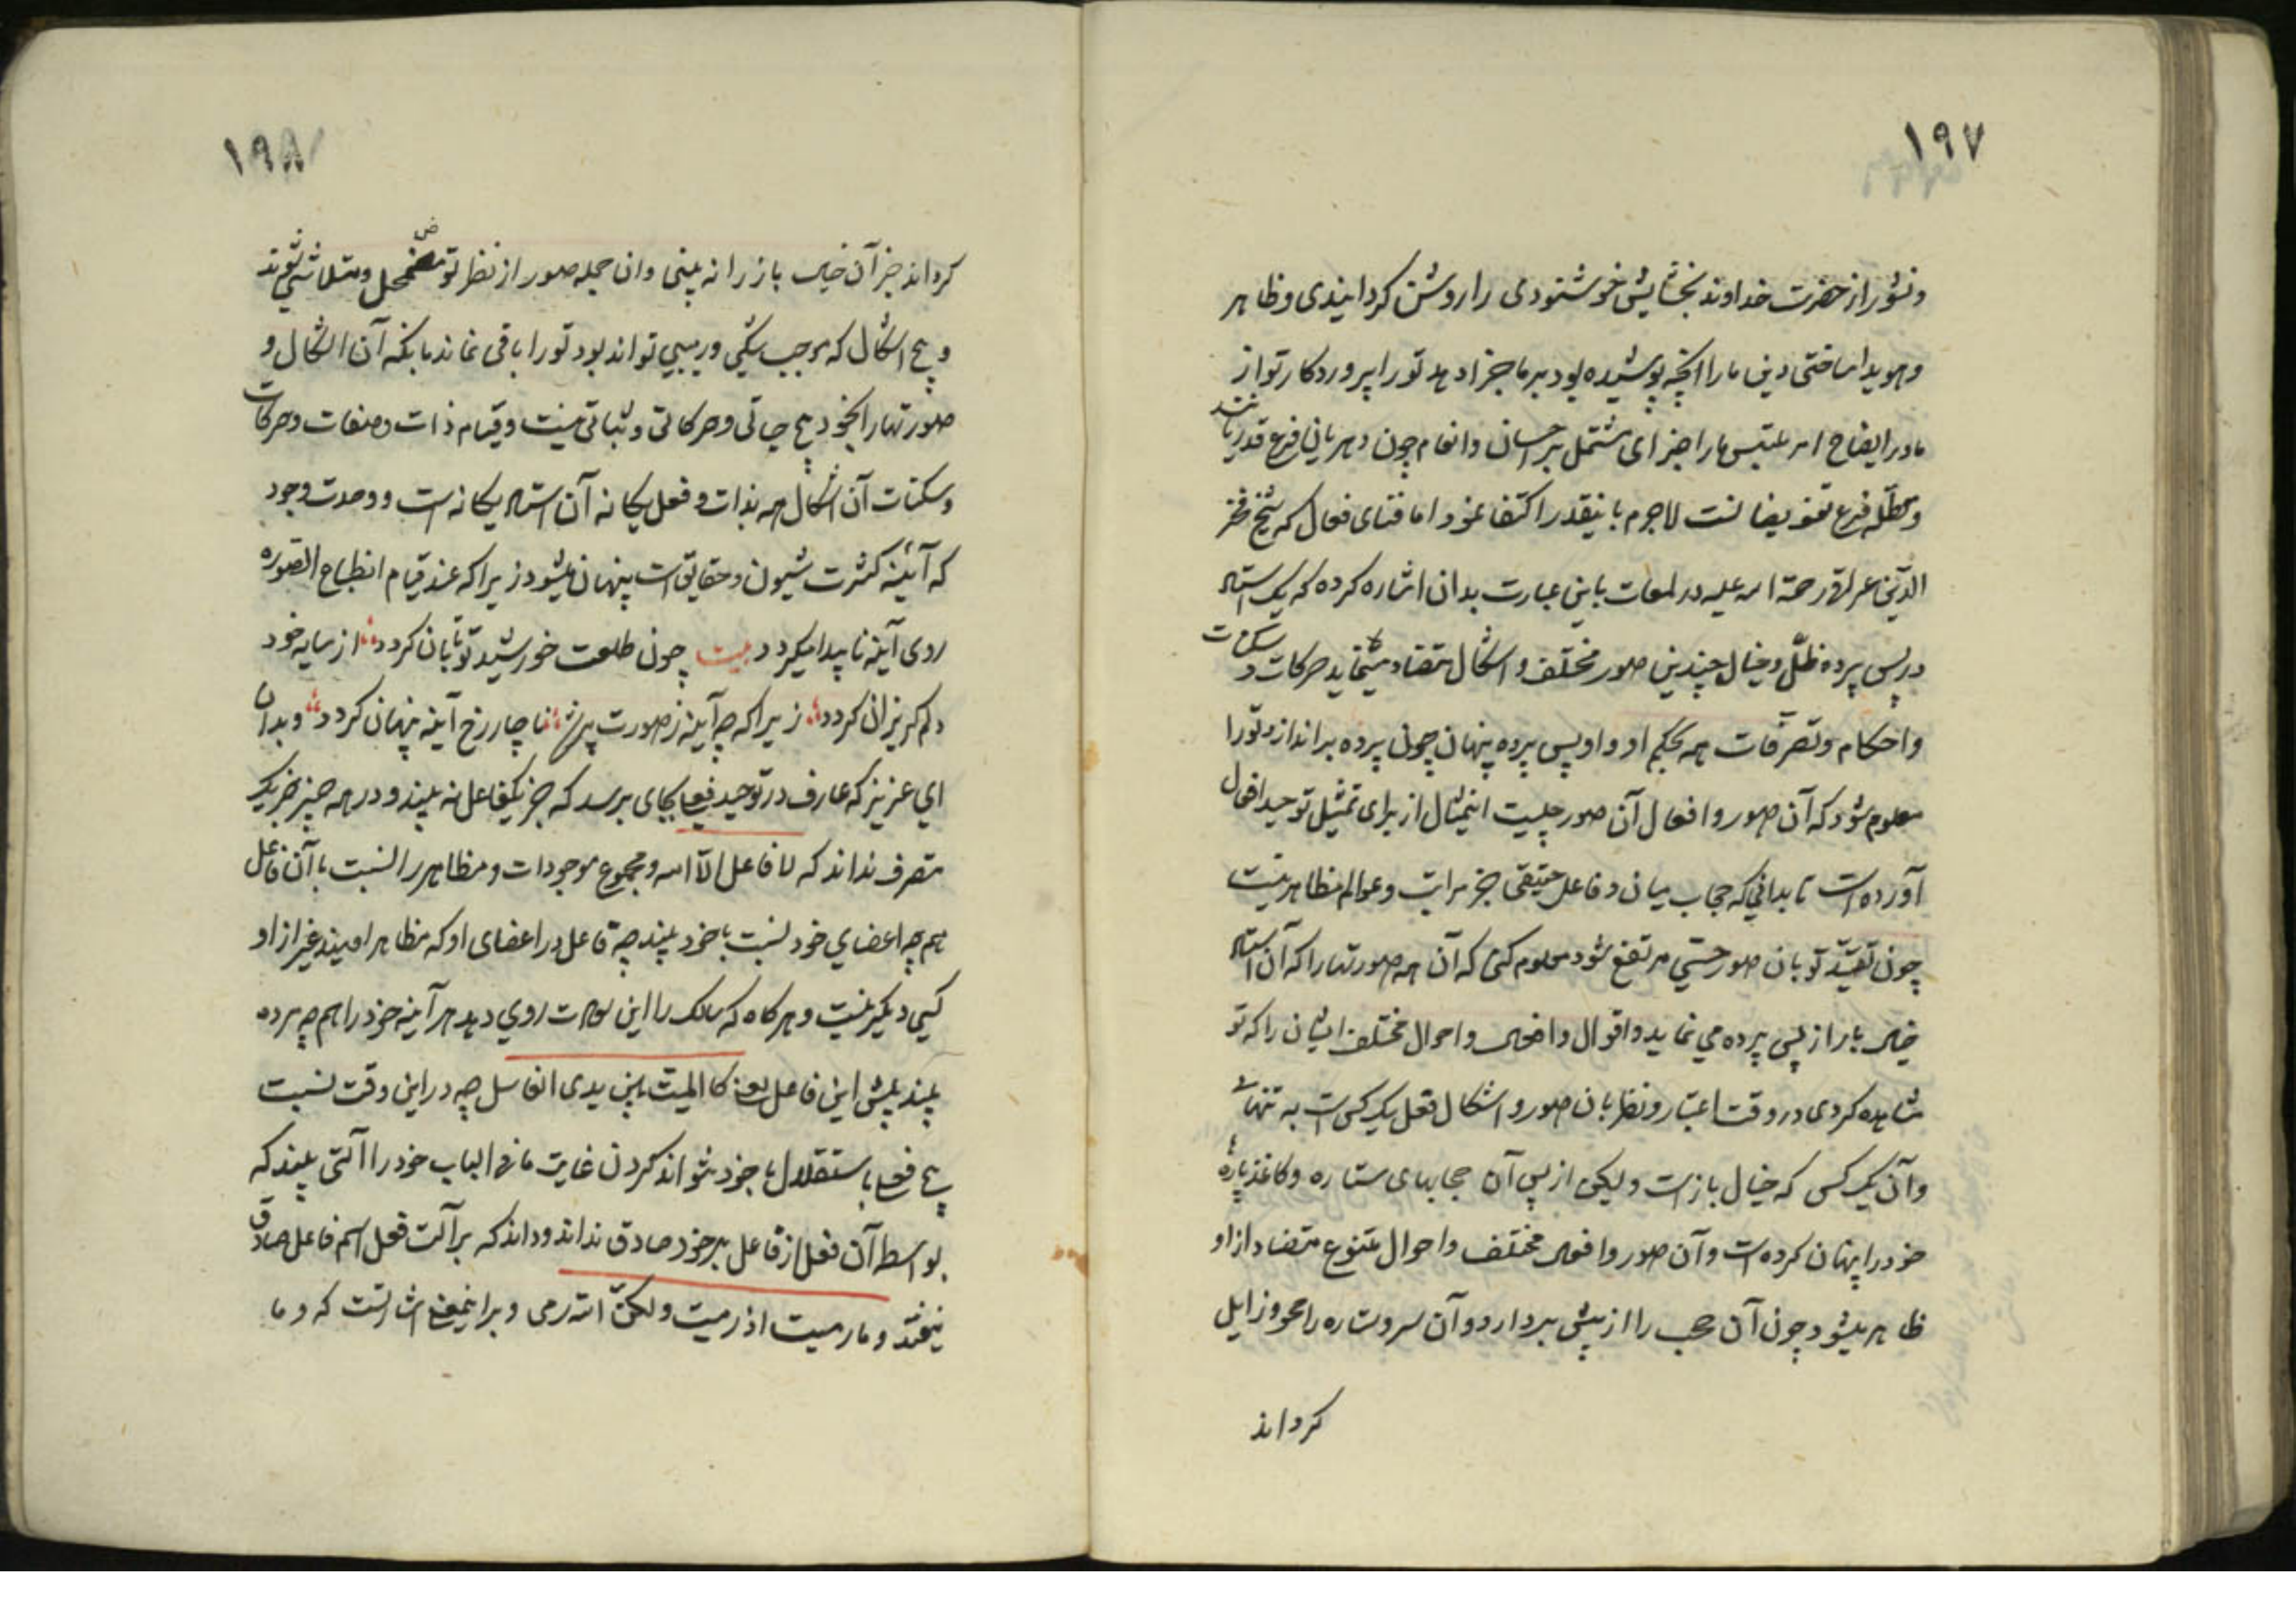 ۱۹۷
ونشور از حضرت خداوند بخشایش خوشنودی را روشن کردانیدی وظاهر
وهویدا ساختی دین ما را آنچه پوشیده بود بر ما جزا دهد تو را پروردکار تو از
ما در ایضاح امر ملتبس ما را جزای مشتمل بر احسان وانعام چون دهریان فرع قدریا نند
ومعطّله فرع تفویضا نست لاجرم باینقدر اکتفا نمود اما فنای فعال که شیخ فخر
الدّین عراقی رحمة الله علیه در لمعات باین عبارت بدان اشاره کرده که یک استاد
در پس پرده ظلّ وخیال چندین صور مختلف واشکال متضاد مینماید حرکات و سکنات
واحکام وتصرّفات همه بحکم او واو پس پرده پنهان چون پرده براندازد تو را
معلوم شود که آن صور وافعال آن صور چیست اینمثال از برای تمثیل توحید افعال
آورده است تا بدانی که حجاب میان و فاعل حقیقی جز مراتب وعوالم مظاهر نیست
چون تقیّد تو بان صور حسّی مرتفع شود معلوم کنی که آن همه صورتها را که آن استاد
خیال باز از پس پرده می نماید واقوال وافعال واحوال مختلف ایشان را که تو
مشاهده کردی در وقت اعتبار ونظر بان صور واشکال فعل یک کس است به تنهائی
وآن یک کس که خیال باز است ولیکن از پس آن حجابهای ستاره وکاغذ پارهٔ
خود را پنهان کرده است وآن صور وافعال مختلف واحوال متنوع متضاد از او
ظاهر میشود چون آن حجب را از پیش بردارد وآن سر وستاره را محو وزایل
کرداند
۱۹۸
کرداند جز آن خیال باز را نه بینی وان جمله صور از نظر تو مضمحل ومتلاشی شوند
وهیچ اشکال که موجب شکی وریبی تواند بود تو را باقی نماند بانکه آن اشکال و
صورتها را بخود هیچ حیاتی وحرکاتی وثباتی نیست وقیام ذات وصفات وحرکات
وسکنات آن اشکال همه بذات وفعل یکانه آن استاد یکانه است ووحدت وجود
که آئینه کثرت شیون وحقایق است پنهان میشود زیرا که عند قیام انطباع الصّوره
روی آینه ناپیدا میکردد بیت چون طلعت خورشید تو تابان کردد از سایه خود
دلم کریزان کردد زیرا که چه آینه ز صورت پر شد ناچار رخ آینه پنهان کردد وبدان
ای عزیز که عارف در توحید فعل بجای برسد که جز یکفاعل نه بیند ودر همه چیز جز یک
متصرف نداند که لا فاعل الّا الله ومجموع موجودات ومظاهر را نسبت با آن فاعل
همچه اعضای خود نسبت با خود بیند چه فاعل در اعضای او که مظاهر اویند غیر از او
کسی دیکر نیست وهرکاه که سالک را این توحید روی دهد هر آینه خود را همچه مرده
بیند پیش این فاعل یعنی کالمیّت بین یدی الغاسل چه در این وقت نسبت
هیچ فعل باستقلال با خود نتواند کردن غایت ما فی الباب خود را آلتی بیند که
بواسطه آن فعل از فاعل بر خود صادق نداند وداند که بر آلت فعل اسم فاعل صادق
نیفتد وما رمیت اذ رمیت ولکنّ الله رمی وبر اینمعنی اشارتست که وما